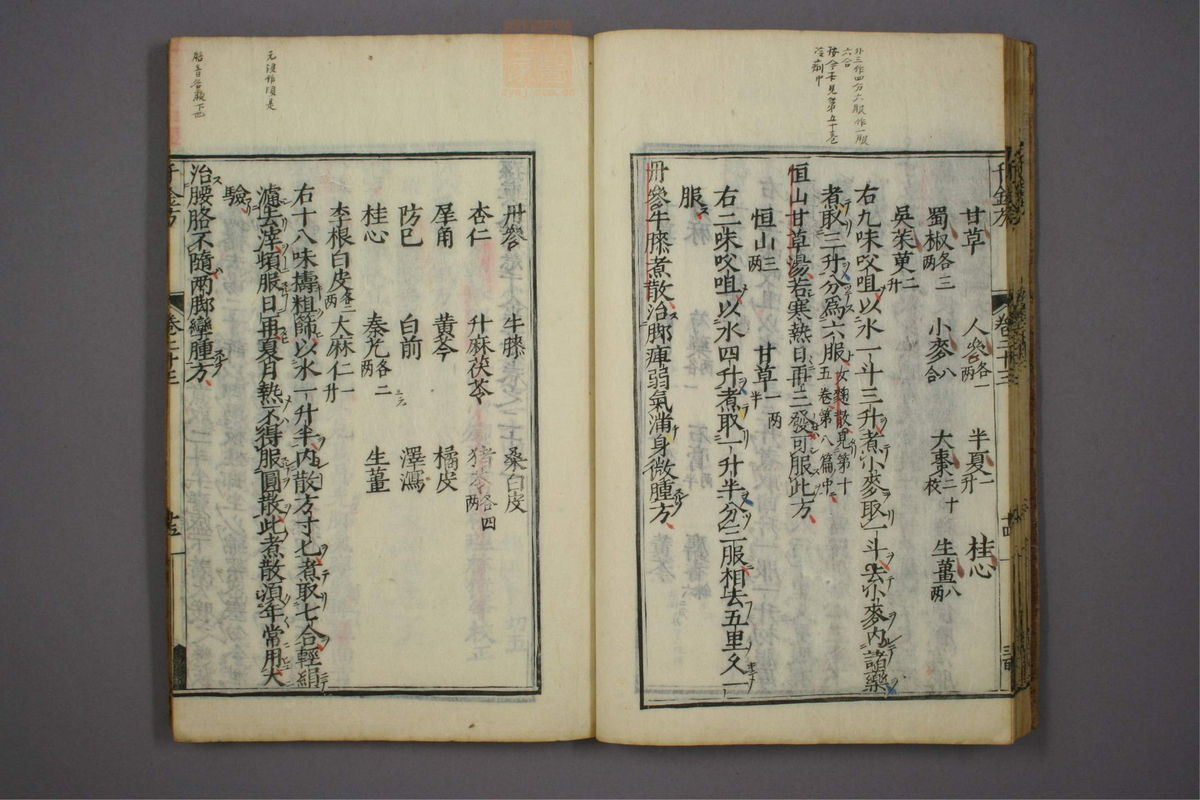 甘草 人參各一兩 半夏一升 桂心
蜀椒各三兩 小麥八合 大棗二十枚 生薑八兩
吳茱萸二升
右九味㕮咀以水一斗三升煮小麥取一斗去小麥內諸藥
煮取三升分爲六服女麴散見第十五卷第八篇中
恒山甘草湯若寒熱日再三發可服此方
恒山三兩 甘草一兩半
右二味㕮咀以水四升煮取一升半分三服相去五里久一
服
丹參牛膝煮散治脚痺弱氣滿身微腫方
丹參 牛膝 桑白皮
杏仁 升麻茯苓 猪苓各四兩
犀角 黃芩 橘皮
防己 白前 澤瀉
桂心 秦艽各二兩 生薑
李根白皮各三兩 大麻仁一升
右十八味擣粗篩以水一升半內散方寸匕煮取七合輕絹
濾去滓頓服日再夏月熱不得服圓散此煮散湏年常用大
驗
治腰胳不隨兩脚攣腫方
千金方 卷二十三
千金方 卷二十三